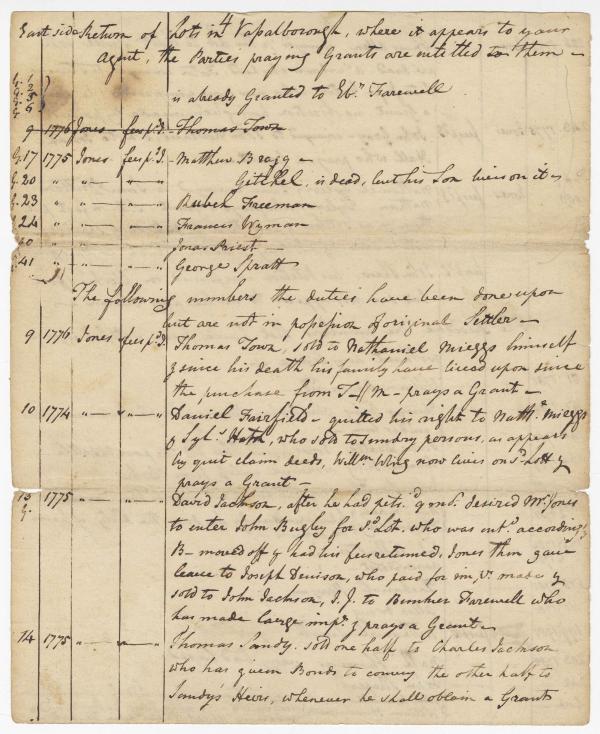 East side Return of Lots in 4 Vassalborough, where it appears to your
Agent, the Parties praying Grants are intitled to them —
1
2
3
6
is already Granted to Ebr. Farewell
9 1776 Jones fees pd. Thomas Town
G. 17 1775 Jones fees pd. Matthew Bragg —
G. 20 " — " — Gitchel, is dead, but his Son lives on it —
G. 23 " — " — Rubeh Freeman
G. 24 " — " — Francis Wyman
40 " — " — Jonas Priest —
41 " — " — George Spratt
The following numbers the duties have been done upon
but are not in possession of original Settler —
9 1776 Jones fees pd. Thomas Town, sold to Nathaniel Mieggs himself
& since his death his family have lived upon since
the purchase from T— M — prays a Grant —
10 1774 " — " — Daniel Fairfield — quitted his right to Nathl. Mieggs
& Syls. Hatch, who sold to sundry persons, as appears
by quit claim deeds, Willm. Wing now lives on sd. Lott &
prays a Grant —
13 1775 " — " — David Jackson, after he had desired Mr. Jones
G.
to enter John Bugley for sd. Lot. who was entd. accordingly
B— moved off & had his fees returned. Jones then gave
leave to Joseph Denison, who paid for made &
sold to John Jackson, J. J. to Bunker Farewell who
has made large impts. & prays a Grant —
14 1775 " — " — Thomas Sandy. sold one half to Charles Jackson
who has given Bonds to convey the other half to
Sandys Heirs, whenever he shall obtain a Grant